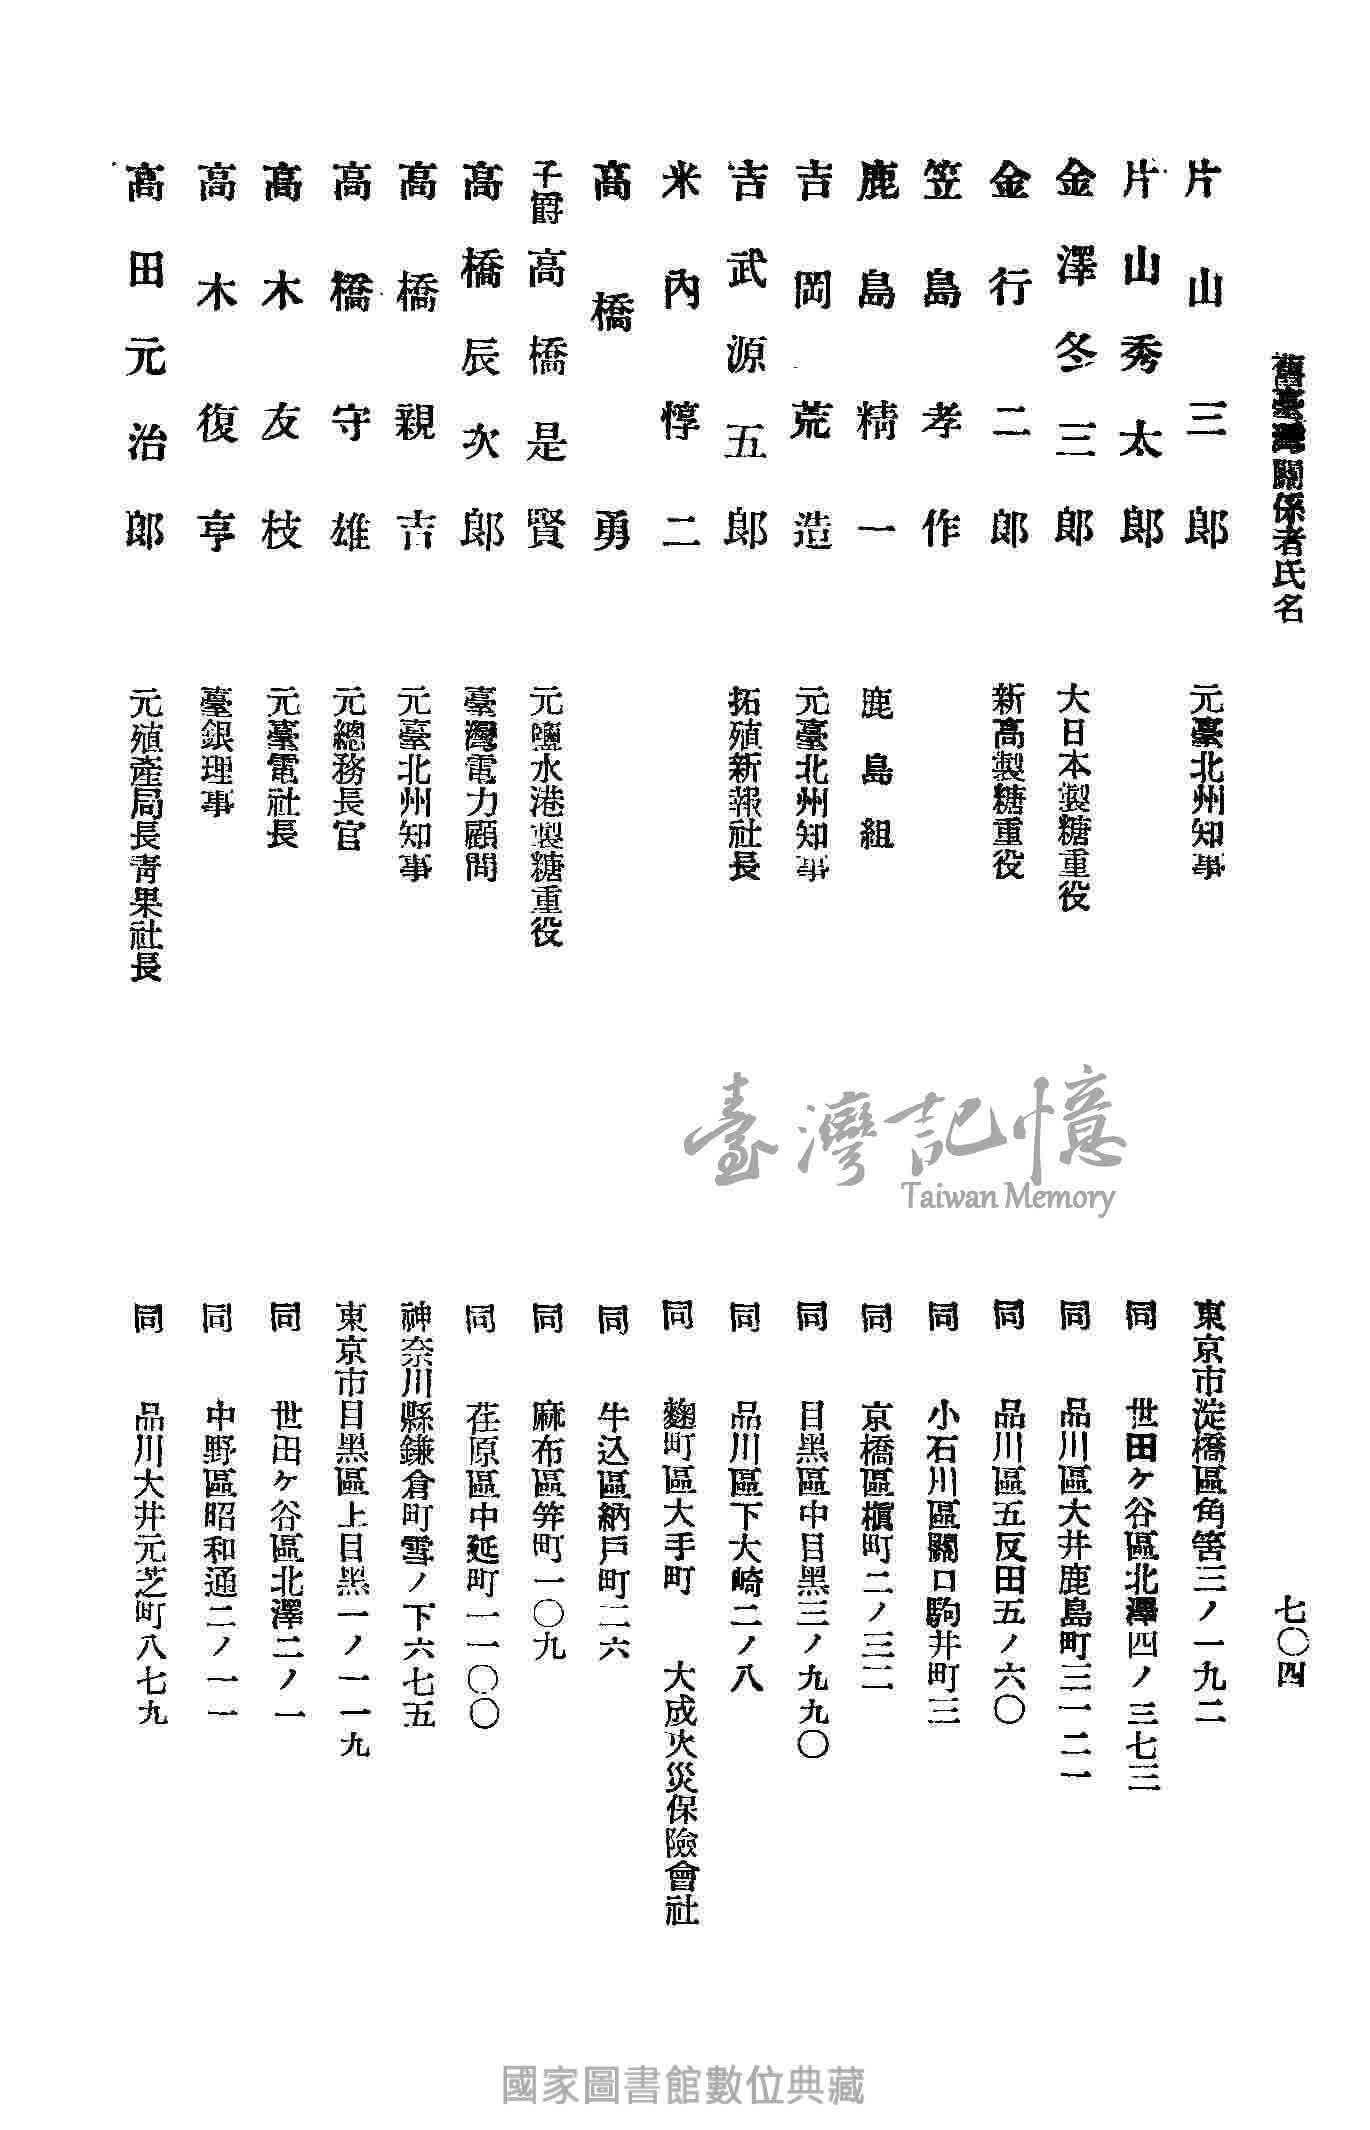 舊臺灣關係者氏名
七〇四
片山三郎 元臺北州知事 東京市淀橋區角筈三ノ一九二
片山秀太郎 同 世田ヶ谷區北澤四ノ三七三
金澤冬三郎 大日本製糖重役 同 品川區大井鹿島町三一二一
金行二郎 新高製糖重役 同 品川區五反田五ノ六〇
笠島孝作 同 小石川區關口駒井町三
鹿島精一 鹿島組 同 京橋區槇町二ノ三二
吉岡荒造 元臺北州知事 同 目黑區中目黑三ノ九九〇
吉武源五郎 拓殖新報社長 同 品川區下大崎二ノ八
米內惇二 同 麴町區大手町 大成火災保險會社
高橋勇 同 牛込區納戶町二六
子爵高橋是賢 元鹽水港製糖重役 同 麻布區笄町一〇九
高橋辰次郎 臺灣電力顧問 同 荏原區中延町一一〇〇
高橋親吉 元臺北州知事 神奈川縣鎌倉町雪ノ下六七五
高橋守雄 元總務長官 東京市目黑區上目黑一ノ一一九
高木友枝 元臺電社長 同 世田ヶ谷區北澤二ノ一
高木復亨 臺銀理事 同 中野區昭和通二ノ一一
高田元治郎 元殖產局長靑果社長 同 品川大井元芝町八七九
臺灣記憶
Taiwan Memory
國家圖書館數位典藏